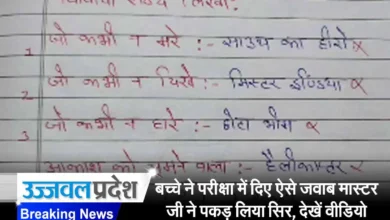 जो कभी न मरे :- साउथ का हीरो x
1
जो कभी न दिखे :- मिस्टर इण्डिया x
2
जो कभी न हारे :- छोटा भीम x
3
आकाश को चूमने वाला :- हैलीकाप्टर x
उज्जवल प्रदेश
Breaking News
बच्चे ने परीक्षा में दिए ऐसे जवाब मास्टर
जी ने पकड़ लिया सिर, देखें वीडियो